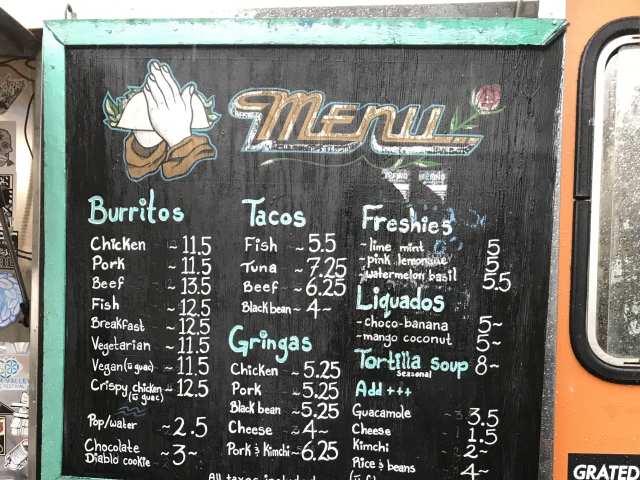 Menu
Burritos
Chicken ~ 11.5
Pork ~ 11.5
Beef ~ 13.5
Fish ~ 12.5
Breakfast ~ 12.5
Vegetarian ~ 11.5
Vegan (w̄ guac) ~ 11.5
Crispy chicken ~ 12.5
(w̄ guac)
Pop/water ~ 2.5
Chocolate
Diablo cookie ~ 3~
Tacos
Fish ~ 5.5
Tuna ~ 7.25
Beef ~ 6.25
Black bean ~ 4~
Gringas
Chicken ~ 5.25
Pork ~ 5.25
Black bean ~ 5.25
Cheese ~ 4~
Pork & Kimchi ~ 6.25
All taxes included
Freshies
- lime mint 5
- pink lemonade 5
- watermelon basil 5.5
Liquados
- choco-banana 5~
- mango coconut 5~
Tortilla soup 8~
Seasonal
Add +++
Guacamole 3.5
Cheese 1.5
Kimchi 2~
Rice & beans 4~
GRATED